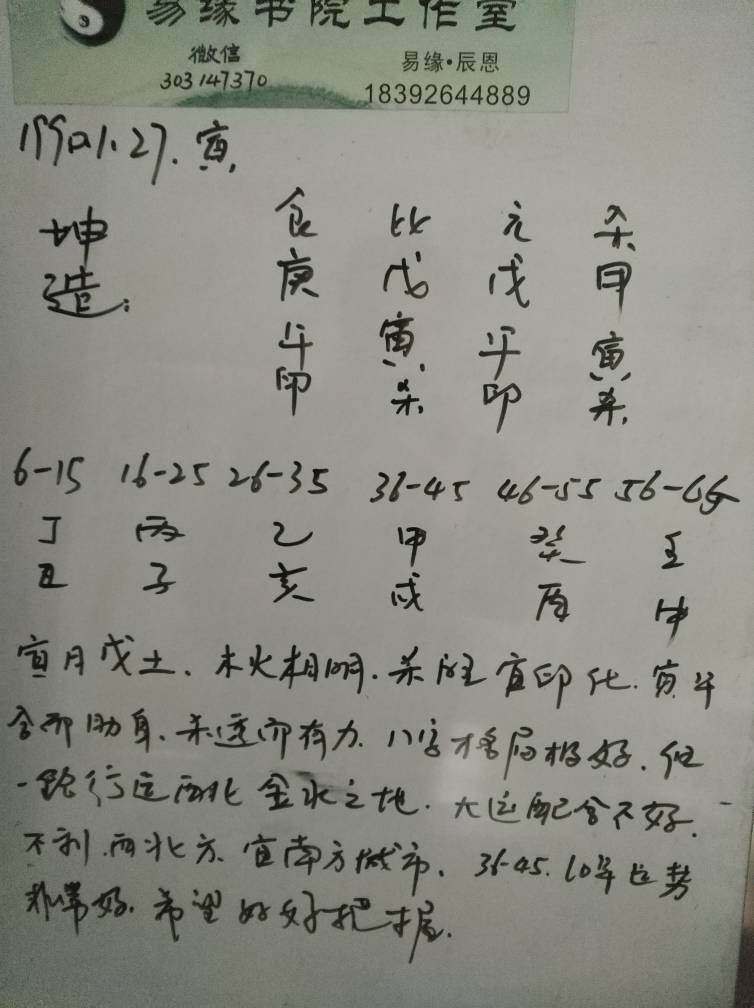 易缘书院工作室
微信
303147370
易缘·辰恩
18392644889
1990.1.27.寅.
坤造:
食 比 元 杀
庚 戊 戊 甲
午 寅 午 寅
印 杀 印 杀
6-15 16-25 26-35 36-45 46-55 56-65
丁 丙 乙 甲 癸 壬
丑 子 亥 戌 酉 申
寅月戊土、木火相明.杀旺宜印化.寅午
合而助身、杀透而有力.八字格局极好.但
一路行运西北金水之地.大运配合不好.
不利.西北方.宜南方城市.36-45.10年运势
非常好.希望好好把握.